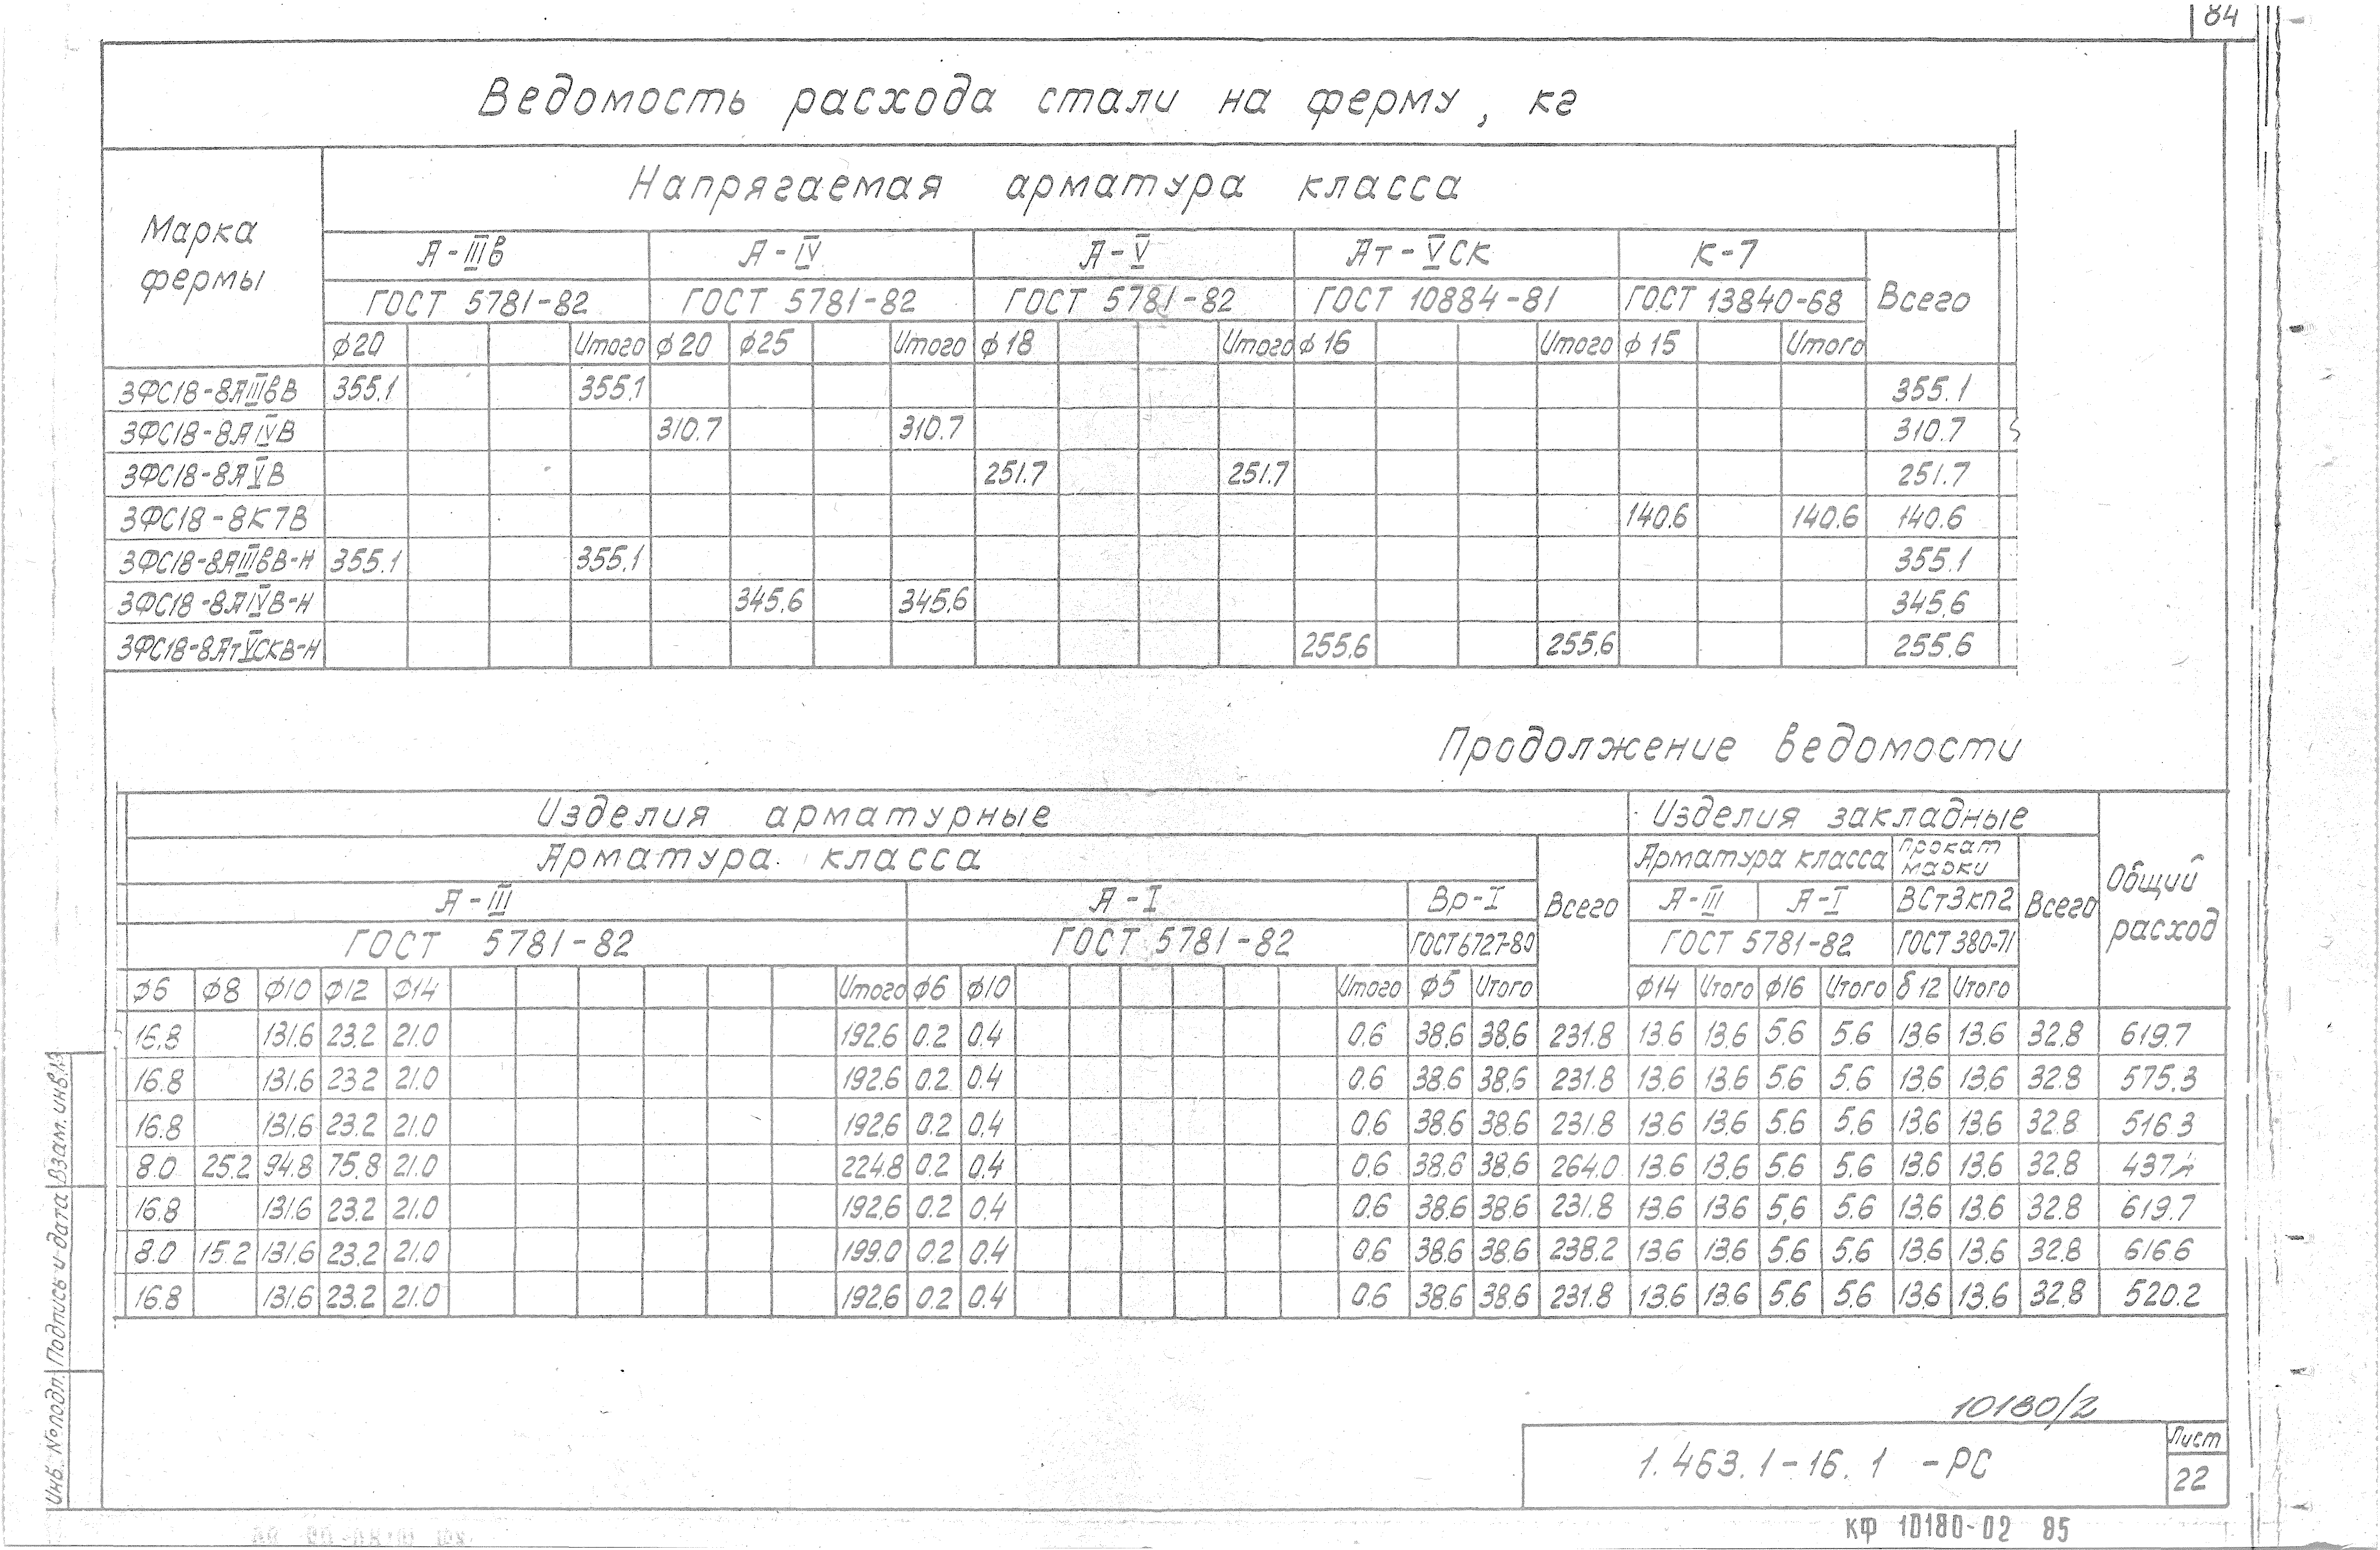 84
Ведомость расхода стали на ферму, кг
Марка фермы
Напрягаемая арматура класса
А-IIIв А-IV А-V Ат-VСК К-7 Всего
ГОСТ 5781-82 ГОСТ 5781-82 ГОСТ 5781-82 ГОСТ 10884-81 ГОСТ 13840-68
ф20 Итого ф20 ф25 Итого ф18 Итого ф16 Итого ф15 Итого
3ФС18-8АIIIвВ 355.1 355.1 355.1
3ФС18-8АIVВ 310.7 310.7 310.7
3ФС18-8АVВ 251.7 251.7 251.7
3ФС18-8К7В 140.6 140.6 140.6
3ФС18-8АIIIвВ-Н 355.1 355.1 355.1
3ФС18-8АIVВ-Н 345.6 345.6 345.6
3ФС18-8АтVСКВ-Н 255.6 255.6 255.6
Продолжение ведомости
Изделия арматурные Изделия закладные
Арматура класса Всего Арматура класса Прокат марки Всего Общий расход
А-III А-I Вр-I А-III А-I ВСт3кп2
ГОСТ 5781-82 ГОСТ 5781-82 ГОСТ 6727-80 ГОСТ 5781-82 ГОСТ 380-71
ф6 ф8 ф10 ф12 ф14 Итого ф6 ф10 Итого ф5 Итого ф14 Итого ф16 Итого δ12 Итого
16.8 131.6 23.2 21.0 192.6 0.2 0.4 0.6 38.6 38.6 231.8 13.6 13.6 5.6 5.6 13.6 13.6 32.8 619.7
16.8 131.6 23.2 21.0 192.6 0.2 0.4 0.6 38.6 38.6 231.8 13.6 13.6 5.6 5.6 13.6 13.6 32.8 575.3
16.8 131.6 23.2 21.0 192.6 0.2 0.4 0.6 38.6 38.6 231.8 13.6 13.6 5.6 5.6 13.6 13.6 32.8 516.3
8.0 25.2 94.8 75.8 21.0 224.8 0.2 0.4 0.6 38.6 38.6 264.0 13.6 13.6 5.6 5.6 13.6 13.6 32.8 437.4
16.8 131.6 23.2 21.0 192.6 0.2 0.4 0.6 38.6 38.6 231.8 13.6 13.6 5.6 5.6 13.6 13.6 32.8 619.7
8.0 15.2 131.6 23.2 21.0 199.0 0.2 0.4 0.6 38.6 38.6 238.2 13.6 13.6 5.6 5.6 13.6 13.6 32.8 616.6
16.8 131.6 23.2 21.0 192.6 0.2 0.4 0.6 38.6 38.6 231.8 13.6 13.6 5.6 5.6 13.6 13.6 32.8 520.2
Инв. № подл. Подпись и дата Взам. инв. №
10180/2
1.463.1-16.1 -РС
Лист
22
КФ 10180-02 85